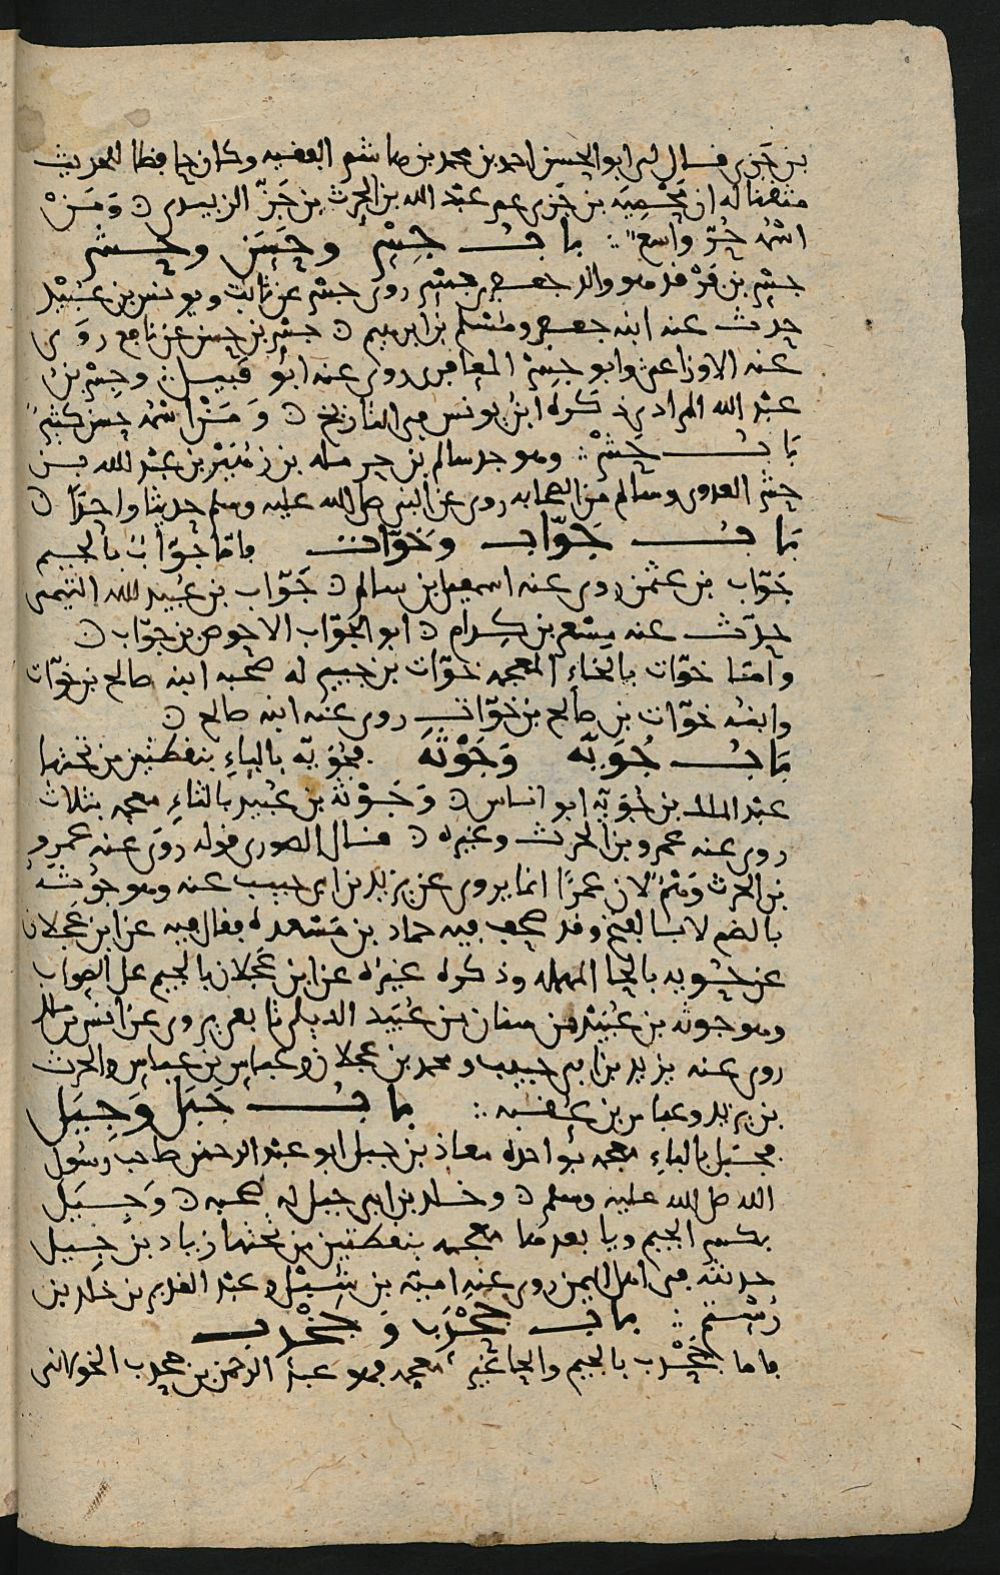 بن جزى قال لى ابو الحسن احمد بن محمد بن هاشم الفقيه وكان حافظا للحديث
متقنا له ان محمية بن جزى عم عبد الله بن الحرث بن جزّ الزبيدى ۞ وَمَنْ
اسْمه حُرّ واسع ∴ باب جِسْر وحَسَن وحشر
جسْر بن فَرْقد هو والد جعفر بن جسْر روى جسْر عن ثابت ويونس بن عُبَيْد
حدث عنه ابنه جعفر ومُسْلم بن ابرهيم ۞ جسْر بن حسن عن نافع رَوَى
عنه الاوزاعى وابو جِسْر المعافرى روى عنه ابو قبيل ∴ وجِسْر بن
عبْد الله المرادى ذكره ابن يونس فى التاريخ ۞ وَمَنْ اسْمُه حسن كثير
بَابُ حِشْر ∴ وهو جد سالم بن حرملة بن زُهَيْر بن عبْد الله بن
حشْر العدوى وسالم من الصحابه روى عن النبى صلى الله عليه وسلم حديثا واحدًا ۞
بَابُ جَوّاب وخَوّات فاما جوّاب بالجيم
جَوّاب بن عثمن روى عنه اسمعيل بن سالم ۞ جَوّاب بن عُبيد الله التيمى
حدّث عنه مِسْعر بن كِدام ۞ ابو الجوّاب الاحوص بن جوّاب ۞
وامّا خوّات بالخاء المعجمه خوّات بن جبير له صحبه ابنه صالح بن خوّات
وابنه خوّات بن صالح بن خوّات روى عنه ابنه صالح ۞
بَابُ جُوَيّه وَجَوْثَه فجُوَيّه بالياءِ بنقطتين من تحتها
عبْد الملك بن جُوَيّه ابو اناس ۞ وَجَوْثة بن عُبيد بالثاءِ معجمه بثلاث
روى عنه عمرو بن الحرث وغيره ۞ قال الصورى قوله رَوَى عنه عمرو
بن الحرث وَهْمٌ لان عمرًا انما يروى عن يزيد بن ابى حبيب عنه وهو جُوثه
بالضم لا بالفتح وقد صحف فيه حماد بن مَسْعده فقال فيه عن ابن عجلان
عن حثويه بالحا المهمله وذكره غيره عن ابن عَجلان بالجيم على الصواب
وهو جوثه بن عُبَيْد من سنان بن عُبَيد الديلى تابعى يروى عن انس بن ملك
روى عنه يزيد بن ابى حبيب ومحمد بن عجلان وعياش بن عباس والحرث
بن يزيد وعياش بن عُقْبه ∴ بابُ جَبَل وَجِيَل
فجَبَل بالباءِ معجمه بواحده معاذ بن جبل ابو عبْد الرحمن صاحب رسُول
الله صلى الله عليه وسلم ۞ وخلد بن ابى جبل له صحبه ۞ وَجِيَل
بكسر الجيم ويا بعدها معجمه بنقطتين من تحتها زياد بن جِيَل
حديثه فى اهل اليمن روى عنه اميّة بن شِبْل وعبْد القدير بن خلد بن
رُسْتم ∴ بابُ جَحْدَب وَجخْدب
فاما جَحْدب بالجيم والحا غير معجمه فهو عبد الرحمن بن جحدب الخولانى